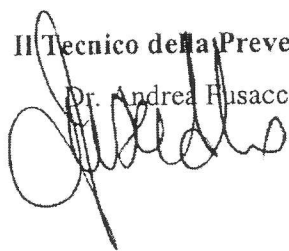 Il Tecnico della Preve
Dr. Andrea Fusacc